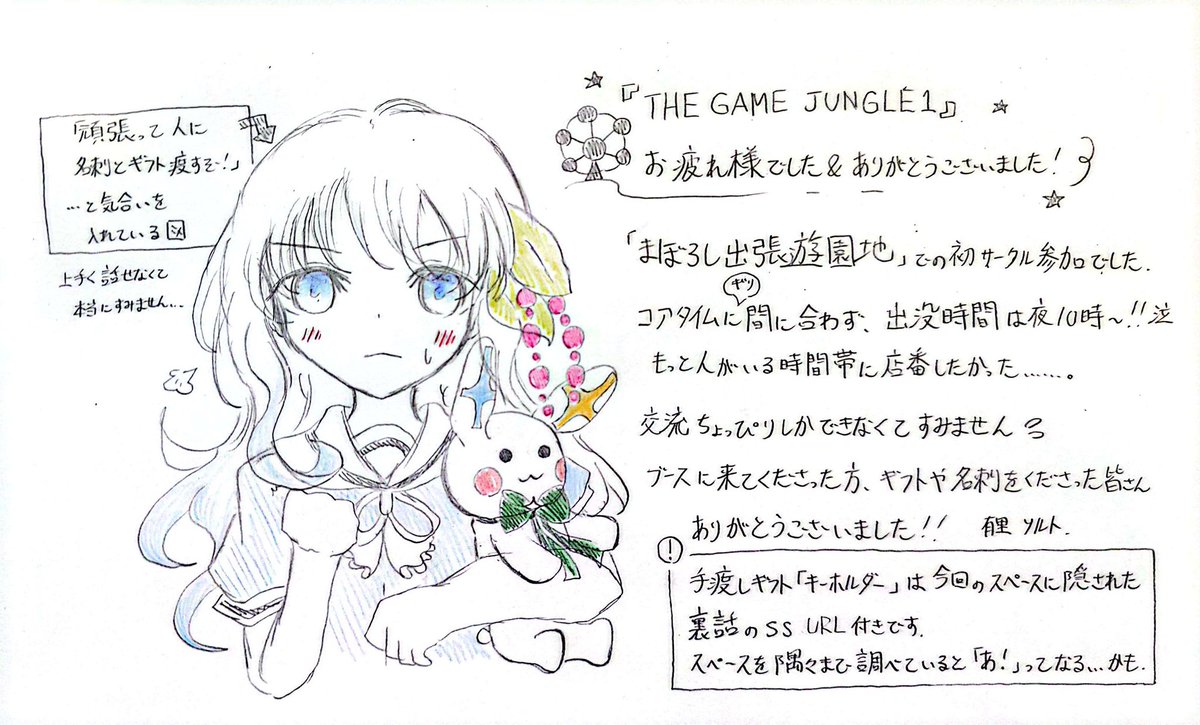 「頑張って人に
名刺とギフト渡すぞ!」
…と気合いを
入れている図
上手く話せなくて
本当にすみません…
『THE GAME JUNGLE1』
お疲れ様でした&ありがとうございました!
「まぼろし出張遊園地」での初サークル参加でした.
ギリ
コアタイムに間に合わず、出没時間は夜10時〜!!泣
もっと人がいる時間帯に店番したかった……。
交流ちょっぴりしかできなくてすみません
ブースに来てくださった方、ギフトや名刺をくださった皆さん
ありがとうございました!! 有里 ソルト.
!
手渡しギフト「キーホルダー」は今回のスペースに隠された
裏話のSS URL付きです.
スペースを隅々まで調べていると「あ!」ってなる…かも.